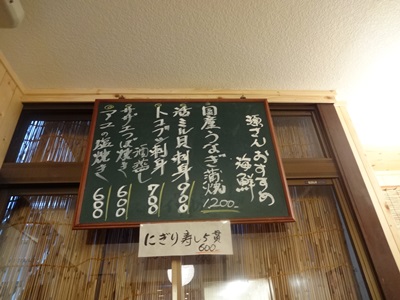 源さんおすすめ
海鮮
国産うなぎ蒲焼 1200
活ミル貝刺身 900
トコブシ刺身 700
酒蒸し
サザエつぼ焼き 600
アユの塩焼き 600
にぎり寿し5貫
600